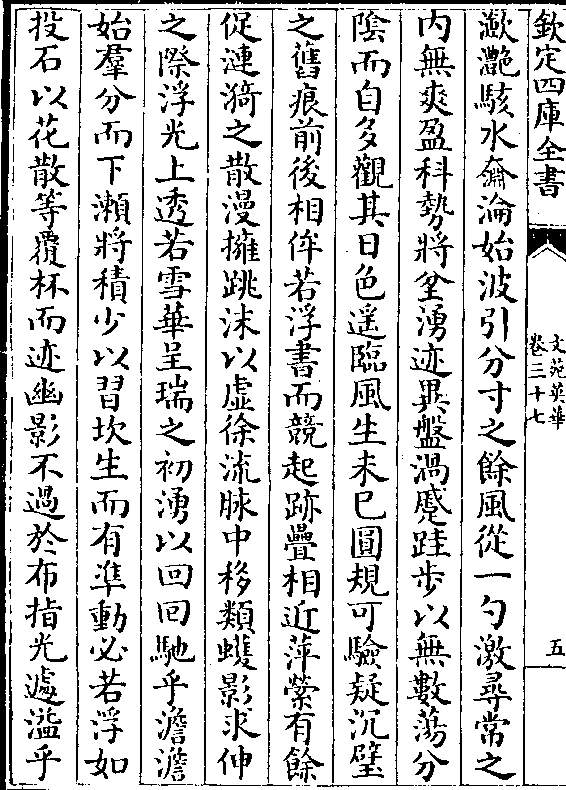 欽定四庫全書
文苑英華
卷三十七
五
瀲灔駭水奫淪始波引分寸之餘風從一勺激尋常之
内無爽盈科勢將坌湧迹異盤渦蹙跬步以無數蕩分
隂而自多觀其日色遥臨風生未已圓規可驗疑沉璧
之舊痕前後相侔若浮書而競起跡疊相近萍縈有餘
促漣漪之散漫擁跳沫以虚徐流脉中移類蠖影求伸
之際浮光上透若雪華呈瑞之初湧以回回馳乎澹澹
始羣分而下瀬將積少以習坎生而有準動必若浮如
投石以花散等覆杯而迹幽影不過於布指光遽溢乎